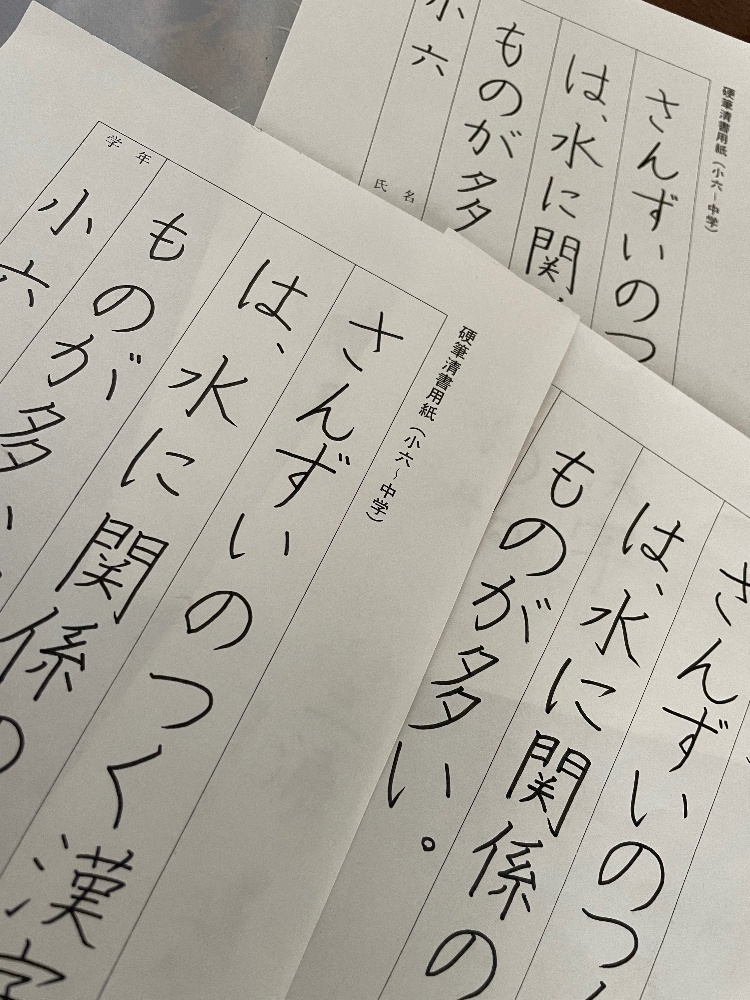 硬筆清書用紙(小六~中学)
さんずいのつ
は、水に関
ものが多
小六
氏名
硬筆清書用紙(小六~中学)
さんずいのつく漢字
は、水に関係の
ものが多い
学年
小六
さんずいのつく
は、水に関係の
ものが多い。